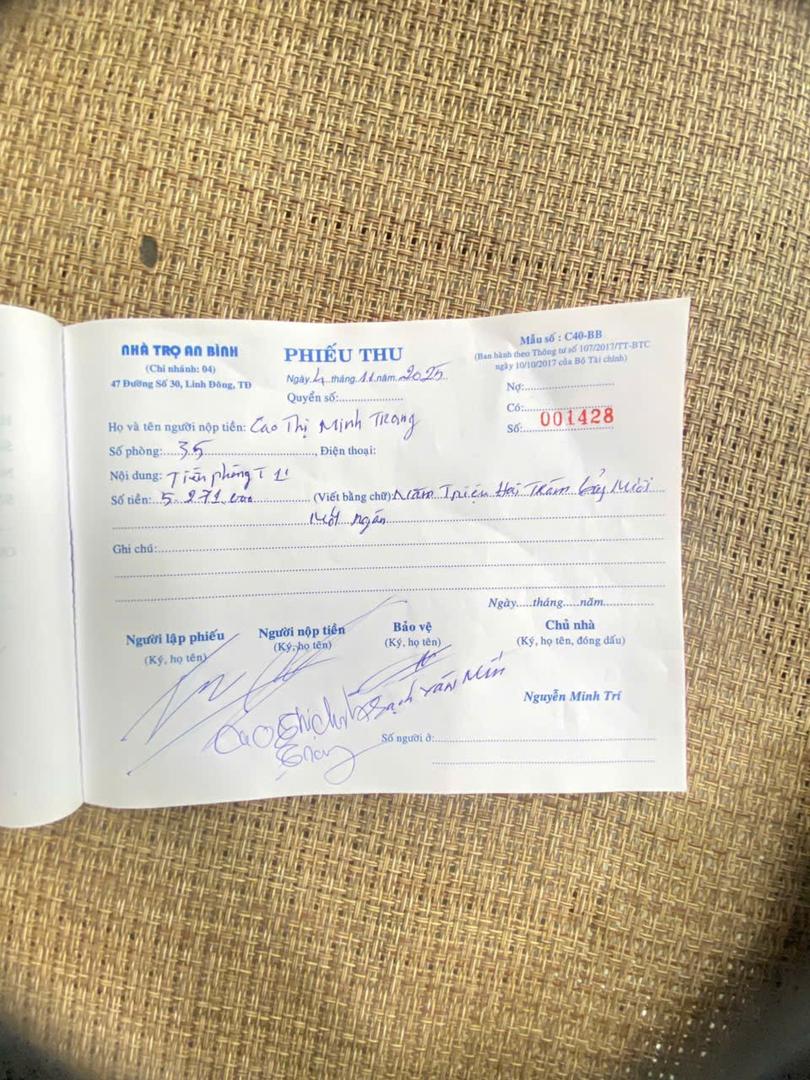 NHÀ TRỌ AN BÌNH
(Chi nhánh: 04)
47 Đường Số 30, Linh Đông, TĐ
PHIẾU THU
Ngày 4 tháng 11 năm 2025
Quyển số:
Mẫu số : C40-BB
(Ban hành theo Thông tư số 107/2017/TT-BTC
ngày 10/10/2017 của Bộ Tài chính)
Nợ:
Có:
Số: 001428
Họ và tên người nộp tiền: Cao Thị Minh Trang
Số phòng: 35, Điện thoại:
Nội dung: Tiền phòng T 11
Số tiền: 5.271.000 (Viết bằng chữ) Năm Triệu Hai Trăm bảy Mươi
Mốt ngàn
Ghi chú:
Ngày.....tháng.....năm
Người lập phiếu
(Ký, họ tên)
Người nộp tiền
(Ký, họ tên)
Bảo vệ
(Ký, họ tên)
Chủ nhà
(Ký, họ tên, đóng dấu)
Cao Thị
Trang
Văn
Nguyễn Minh Trí
Số người ở: